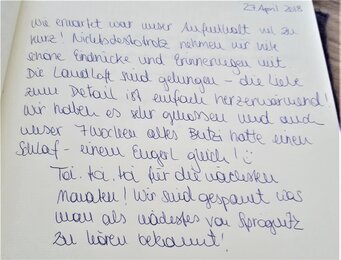 27 April 2018
Wie erwartet war unser Aufenthalt viel zu
kurz! Nichtsdestotrotz nehmen wir viele
schöne Eindrücke und Erinnerungen mit
Die Landlofts sind gelungen - die Liebe
zum Detail ist einfach herzerwärmend!
Wir haben es sehr genossen und auch
unser 7 Wochen altes Butzi hatte einen
Schlaf - einem Engerl gleich!
Toi, toi, toi für die nächsten
Monaten! Wir sind gespannt was
man als nächstes von Sprögnitz
zu hören bekommt!